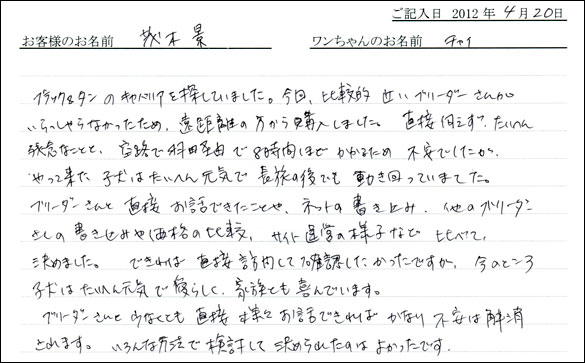 ご記入日 2012年 4月20日
お客様のお名前 茂木 景 ワンちゃんのお名前 チャイ
ブラック&タンのキャバリアを探していました。今回、比較的近いブリーダーさんが
いらっしゃらなかったため、遠距離の方から購入しました。直接伺えず、たいへん
残念なことと、空路で羽田経由で8時間ほどかかるため不安でしたが、
やって来た子犬はたいへん元気で長旅の後でも動き回っていました。
ブリーダーさんと直接お話できたことや、ネットの書き込み、他のブリーダー
さんの書き込みや価格の比較、サイト運営の様子など比べて、
決めました。できれば直接訪問して確認したかったですが、今のところ
子犬はたいへん元気で愛らしく、家族とも喜んでいます。
ブリーダーさんと少なくとも直接 お話できればかなり不安は解消
されます。いろんな方法で検討して決められたのはよかったです。